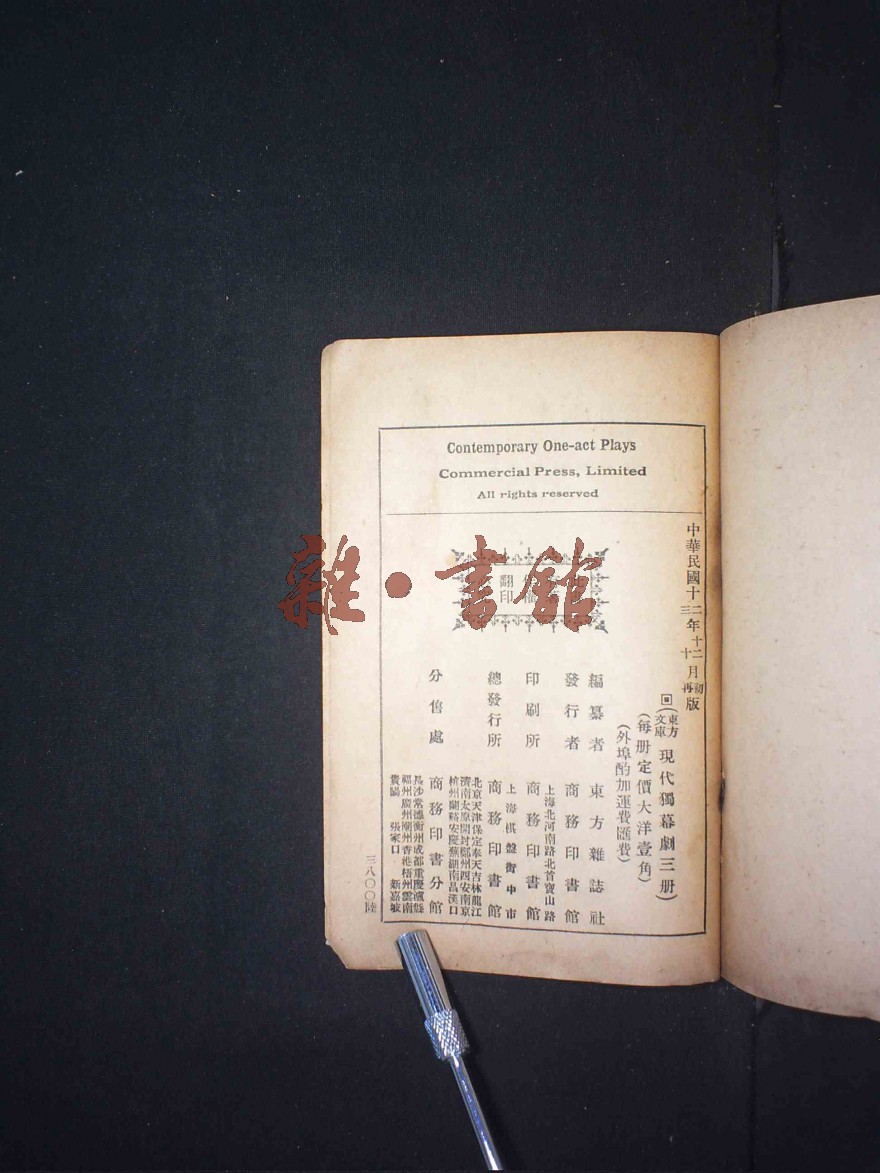 Contemporary One-act Plays
Commercial Press, Limited
All rights reserved
中華民國十二年十二月初版
三 十 再
回(東方文庫)現代獨幕劇三册)
(每册定價大洋壹角)
(外埠酌加運費匯費)
編纂者 東方雜誌社
發行者 商務印書館
上海北河南路北首寶山路
印刷所 商務印書館
上海棋盤街中市
總發行所 商務印書館
北京天津保定奉天吉林龍江
濟南太原開封鄭州西安南京
杭州蘭谿安慶蕪湖南昌漢口
分售處 商務印書分館
長沙常德衡州成都重慶瀘縣
福州廣州潮州香港梧州雲南
貴陽 張家口 新嘉坡
三八〇〇陸
翻印
雜·書館